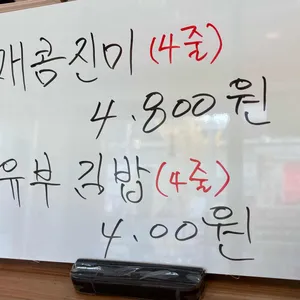 매콤진미(4줄)
4.800원
유부김밥(4줄)
4.00원